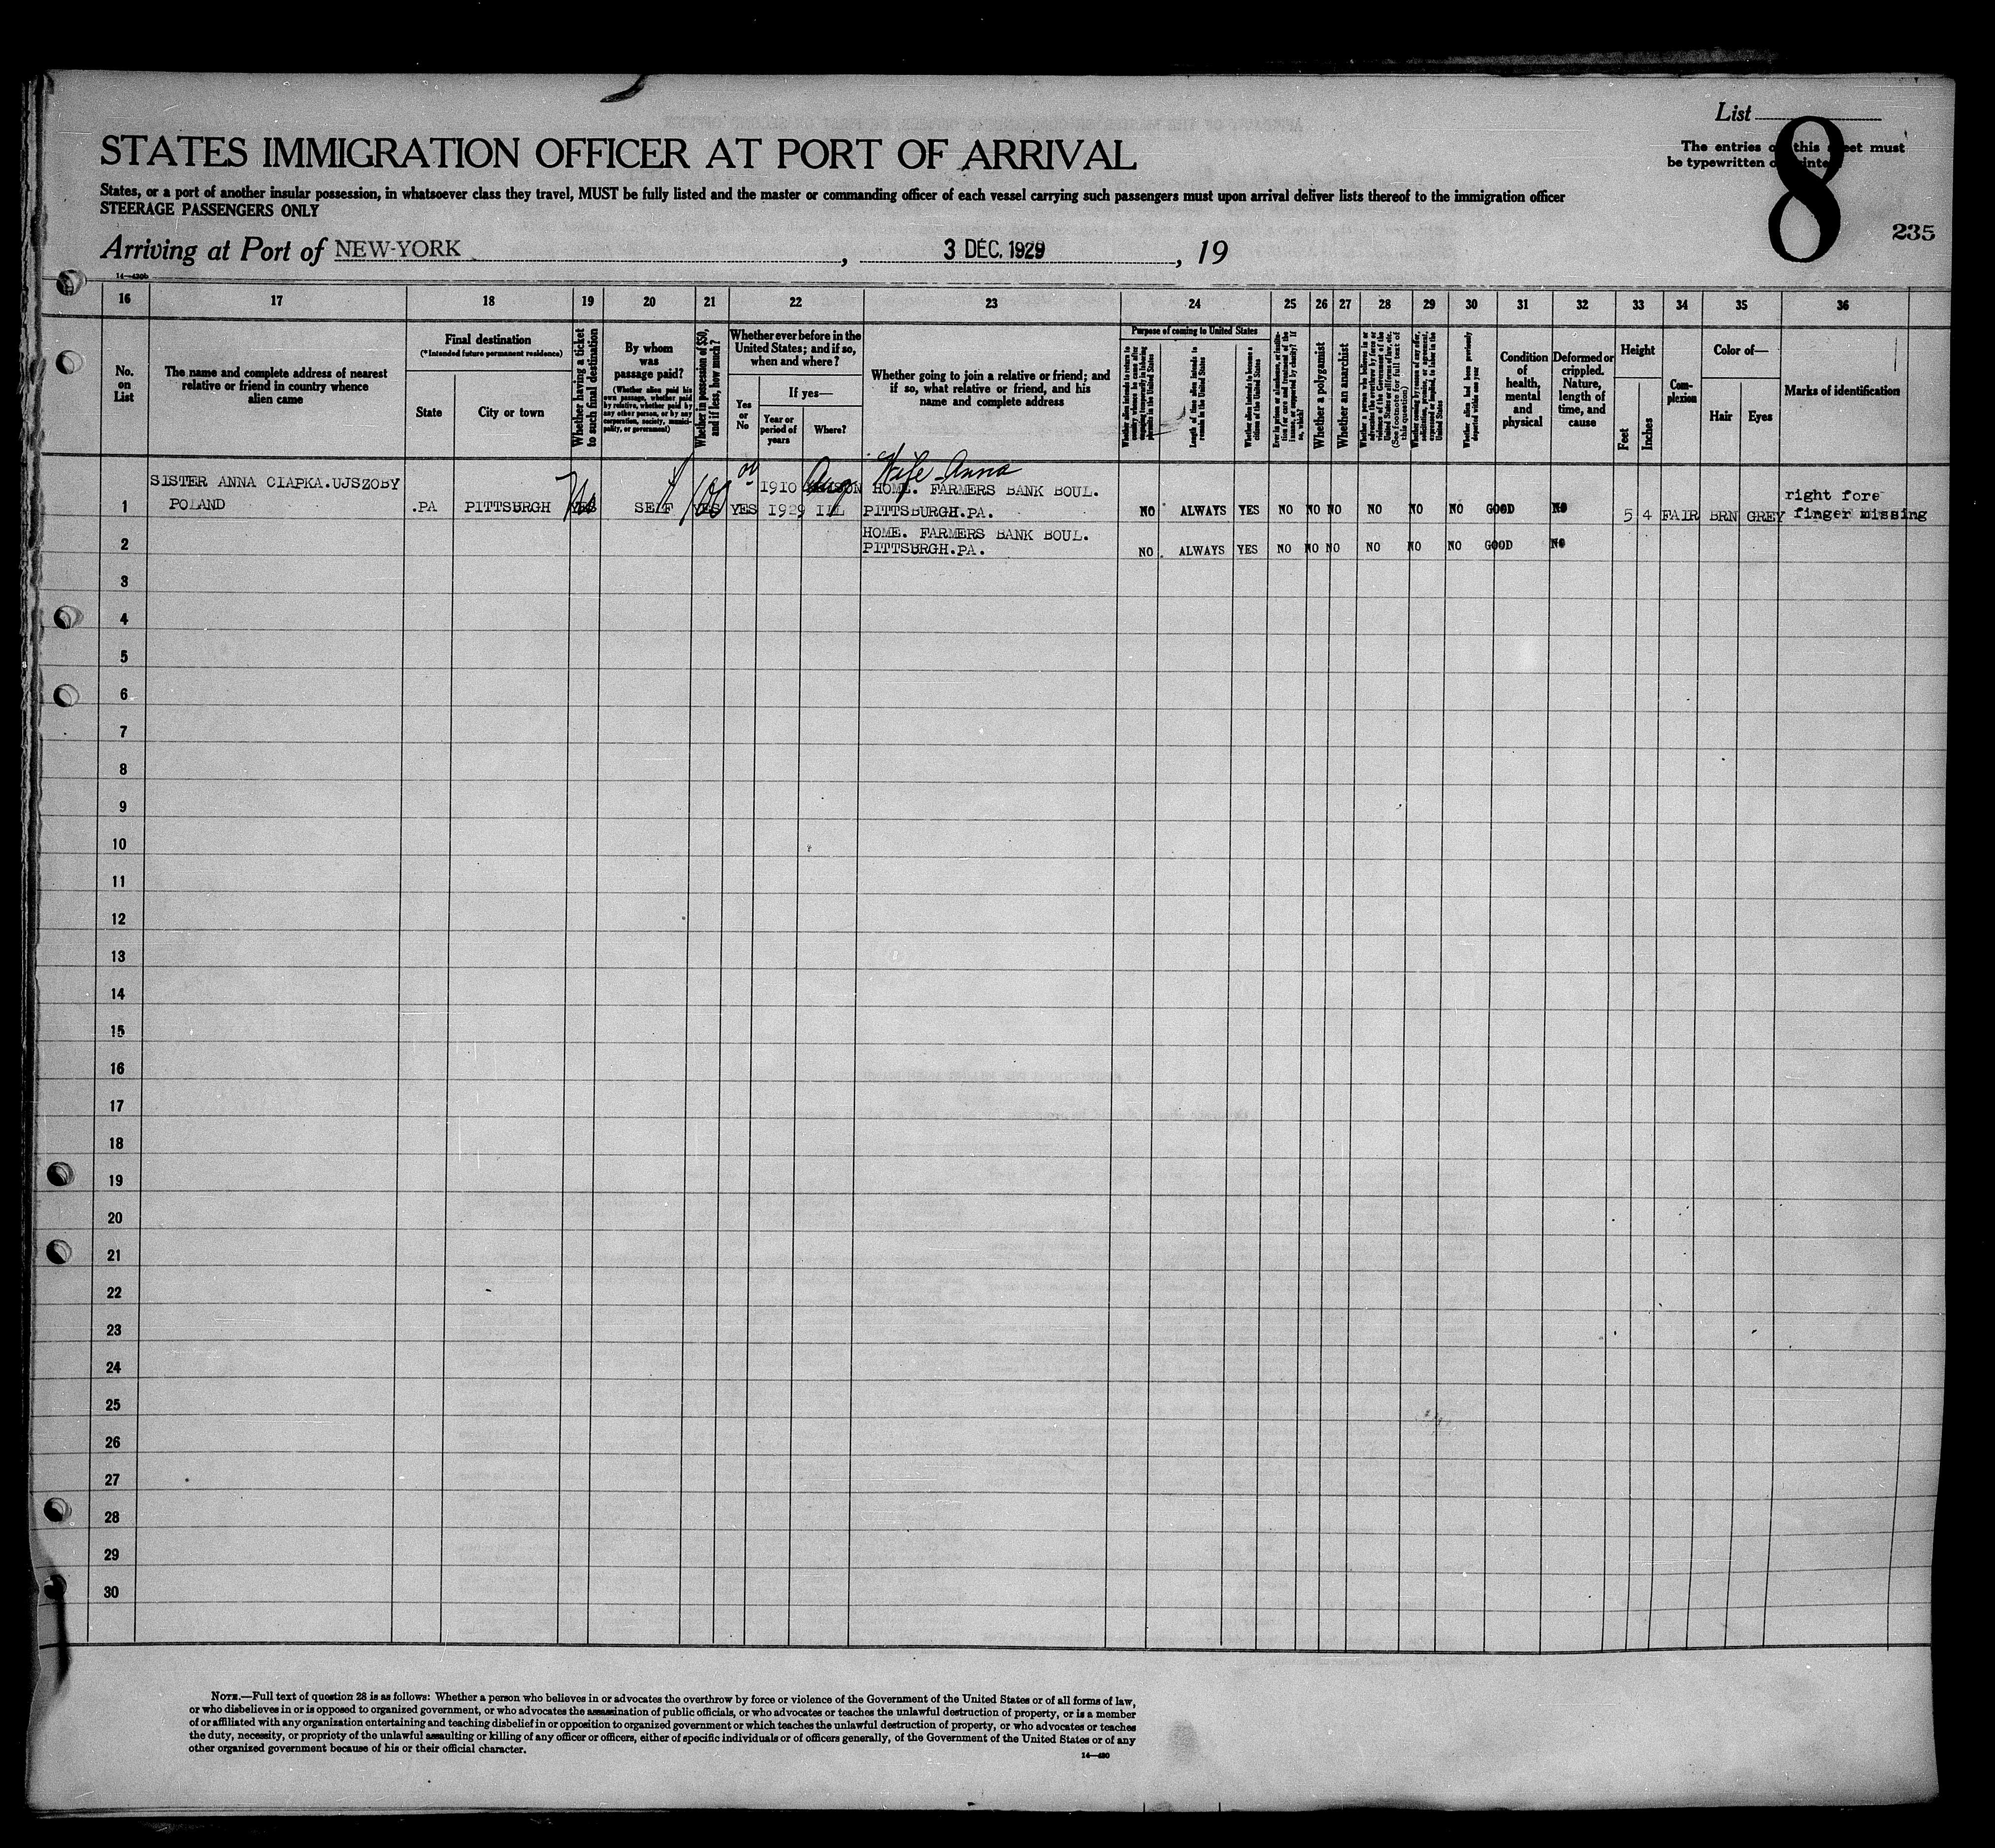 List
8
The entries this must
be typewritten
STATES IMMIGRATION OFFICER AT PORT OF ARRIVAL
States, or a port of another insular possession, in whatsoever class they travel, MUST be fully listed and the master or commanding officer of each vessel carrying such passengers must upon arrival deliver lists thereof to the immigration officer
STEERAGE PASSENGERS ONLY
235
Arriving at Port of NEW-YORK , 3 DÉC. 1929 , 19
14—430b
16 17 18 19 20 21 22 23 24 25 26 27 28 29 30 31 32 33 34 35 36
No.
on
List
The name and complete address of nearest
relative or friend in country whence
alien came
Final destination
(*Intended future permanent residence)
State
City or town
Whether having a ticket
to such final destination
By whom
was
passage paid?
(Whether alien paid his
own passage, whether paid
by relative, whether paid by
any other person, or by any
corporation, society, munici-
pality, or government)
Whether in possession of $50,
and if less, how much?
Whether ever before in the
United States; and if so,
when and where?
Yes
or
No
If yes—
Year or
period of
years
Where?
Whether going to join a relative or friend; and
if so, what relative or friend, and his
name and complete address
Purpose of coming to United States
Whether alien intends to return to
country whence he came after
engaging temporarily in laboring
pursuits in the United States
Length of time alien intends to
remain in the United States
Whether alien intends to become a
citizen of the United States
Ever in prison or almshouse, or institu-
tion for care and treatment of the
insane, or supported by charity? If
so, which?
Whether a polygamist
Whether an anarchist
Whether a person who believes in or
advocates the overthrow by force or
violence of the Government of the
United States or all forms of law, etc.
(See footnote for full text of
this question)
Whether coming by reason of any offer,
solicitation, promise, or agreement,
expressed or implied, to labor in the
United States
Whether alien had been previously
deported within one year
Condition
of
health,
mental
and
physical
Deformed or
crippled.
Nature,
length of
time, and
cause
Height
Feet
Inches
Com-
plexion
Color of—
Hair
Eyes
Marks of identification
Wife Anna
SISTER ANNA CIAPKA.UJSZOBY 1910 HOME. FARMERS BANK BOUL. right fore
1 POLAND .PA PITTSBURGH YES SELF YES YES 1929 ILL PITTSBURGH.PA. NO ALWAYS YES NO NO NO NO NO NO GOOD NO 5 4 FAIR BRN GREY finger missing
HOME. FARMERS BANK BOUL.
2 PITTSBURGH.PA. NO ALWAYS YES NO NO NO NO NO NO GOOD NO
3
4
5
6
7
8
9
10
11
12
13
14
15
16
17
18
19
20
21
22
23
24
25
26
27
28
29
30
NOTE.—Full text of question 28 is as follows: Whether a person who believes in or advocates the overthrow by force or violence of the Government of the United States or of all forms of law,
or who disbelieves in or is opposed to organized government, or who advocates the assassination of public officials, or who advocates or teaches the unlawful destruction of property, or is a member
of or affiliated with any organization entertaining and teaching disbelief in or opposition to organized government or which teaches the unlawful destruction of property, or who advocates or teaches
the duty, necessity, or propriety of the unlawful assaulting or killing of any officer or officers, either of specific individuals or of officers generally, of the Government of the United States or of any
other organized government because of his or their official character.
14—430